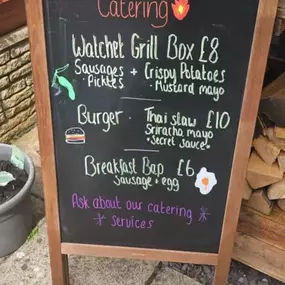 Catering
Watchet Grill Box £8
Sausages + Crispy Potatoes
· Pickles · Mustard mayo
Burger · Thai slaw £10
Sriracha mayo
· Secret Sauce ·
Breakfast Bap £6
Sausage + egg
Ask about our catering
services